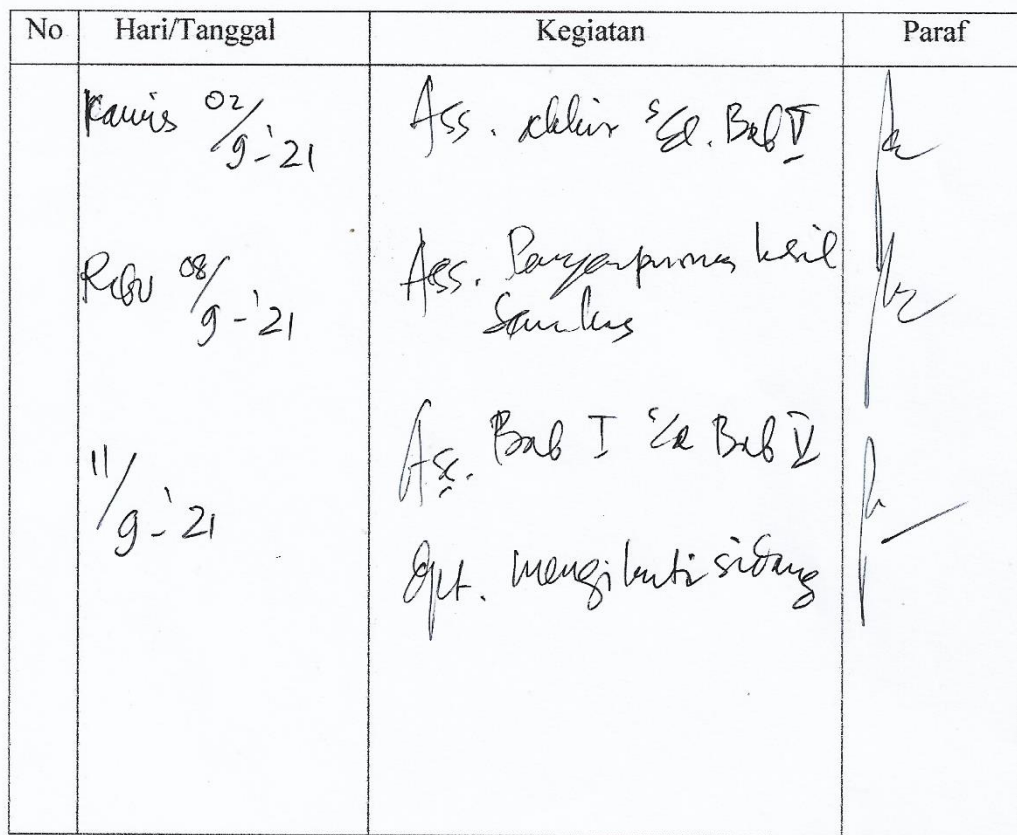 No Hari/Tanggal Kegiatan Paraf
Kamis 02/9-'21 Ass. akhir s/d. Bab V
Rabu 08/9-'21 Ass. Penyempurnaan hasil
11/9-'21 Ass. Bab I s/d Bab V
mengikuti sidang